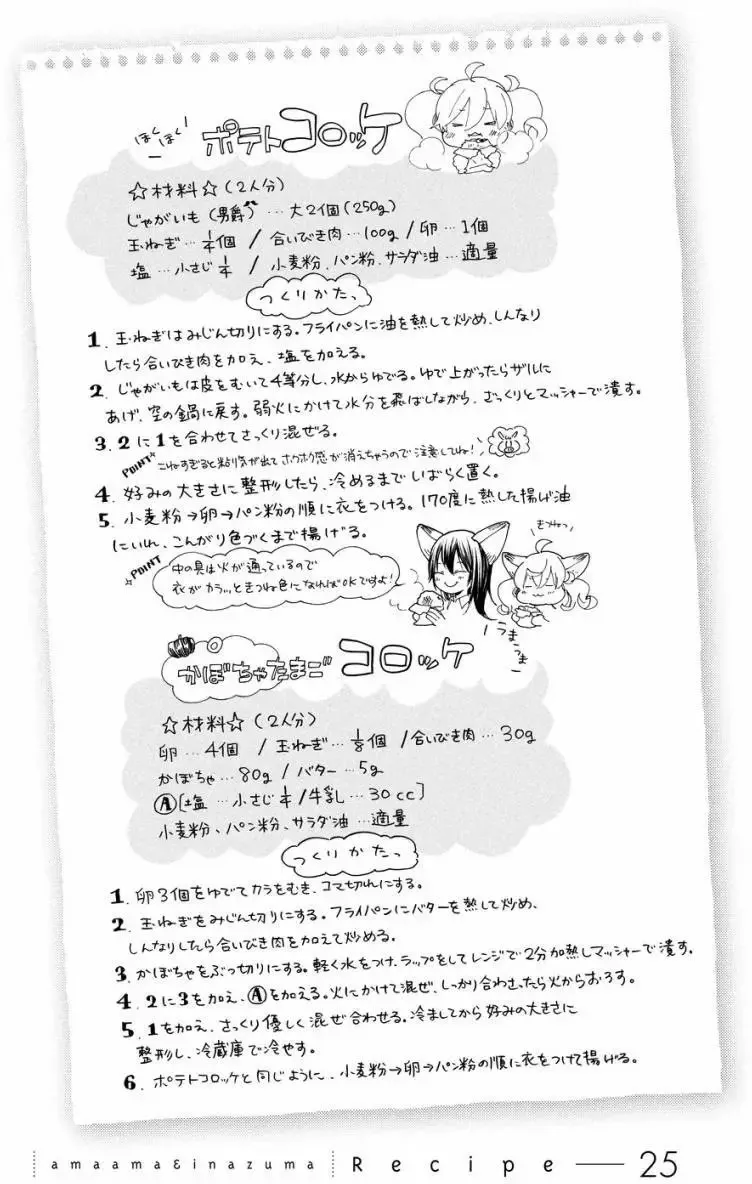 ほくほく!
ポテトコロッケ
☆材料☆(2人分)
じゃがいも(男爵)…大2個(250g)
玉ねぎ…1/4個 / 合いびき肉…100g / 卵…1個
塩…小さじ1/4 / 小麦粉、パン粉、サラダ油…適量
つくりかた、
1. 玉ねぎはみじん切りにする。フライパンに油を熱して炒め、しんなり
したら合いびき肉を加え、塩を加える。
2. じゃがいもは皮をむいて4等分し、水からゆでる。ゆで上がったらザルに
あげ、空の鍋に戻す。弱火にかけて水分を飛ばしながら、ざっくりとマッシャーで潰す。
3. 2に1を合わせてさっくり混ぜる。
POINT
こねすぎると粘り気が出てホクホク感が消えちゃうので注意してね!
4. 好みの大きさに整形したら、冷めるまでしばらく置く。
5. 小麦粉→卵→パン粉の順に衣をつける。170度に熱した揚げ油
にいれ、こんがり色づくまで揚げる。
POINT
中の具は火が通っているので
衣がカラッときつね色になればOKですよ!
きつねっ
うまうま
かぼちゃたまご コロッケ
☆材料☆(2人分)
卵…4個 / 玉ねぎ…1/8個 / 合いびき肉…30g
かぼちゃ…80g / バター…5g
Ⓐ[塩…小さじ1/4 / 牛乳…30cc]
小麦粉、パン粉、サラダ油…適量
つくりかたっ
1. 卵3個をゆでてカラをむき、コマ切れにする。
2. 玉ねぎをみじん切りにする。フライパンにバターを熱して炒め、
しんなりしたら合いびき肉を加えて炒める。
3. かぼちゃをぶつ切りにする。軽く水をつけ、ラップをしてレンジで2分加熱しマッシャーで潰す。
4. 2に3を加え、Ⓐを加える。火にかけて混ぜ、しっかり合わさったら火からおろす。
5. 1を加え、さっくり優しく混ぜ合わせる。冷ましてから好みの大きさに
整形し、冷蔵庫で冷やす。
6. ポテトコロッケと同じように、小麦粉→卵→パン粉の順に衣をつけて揚げる。
amaama&inazuma Recipe — 25